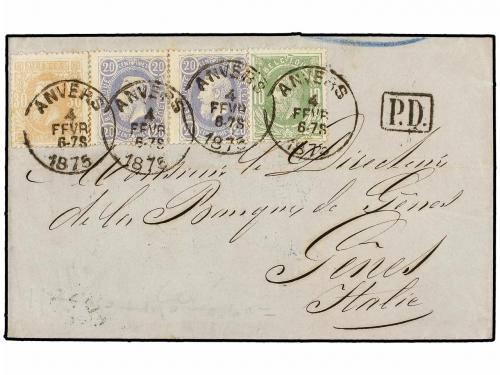 20 20 20 20 10 10
ANVERS ANVERS ANVERS ANVERS
4 4 4 4
FEVR FEVR FEVR FEVR
6-7S 6-7S 6-7S 6-7S
1875 1875 1875 1875
P.D.
Monsieur le Directeur
de la Banque de Gênes
Gênes
Italie